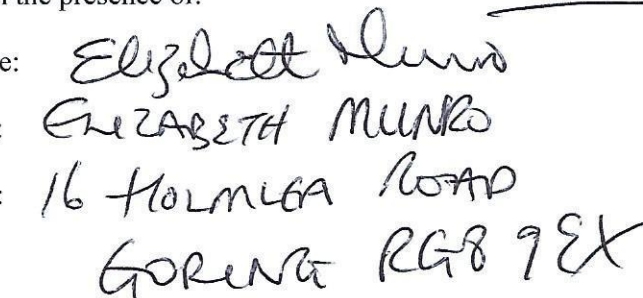 the presence of:
e: Elizabeth Munro
: ELIZABETH MUNRO
: 16 HOLMLEA ROAD
GORING RG8 9EX